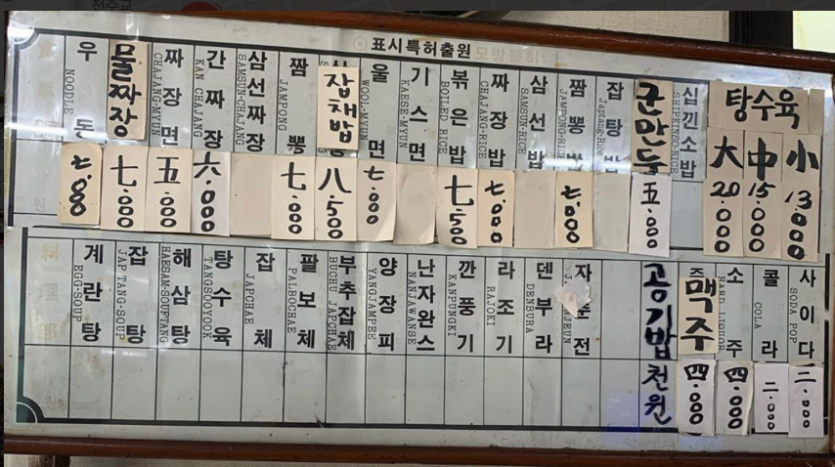 표시특허출원
우돈 NOODLE 七.000
물짜장 七.000
짜장면 CHAJANG-MYUN 五.000
간짜장 KAN CHAJANG 六.000
삼선짜장 SAMSUN-CHAJANG
짬뽕 JAMPONG 七.000
잡채밥 八.500
울면 WOOL-MYUN 七.000
기스면 KAESE-MYUN
볶은밥 BOILED RICE 七.500
짜장밥 CHAJANG-RICE 七.000
삼선밥 SAMSUN-RICE
짬뽕밥 JAMPONG-RICE 七.000
잡탕밥
군만두 五.000
십낀소밥 SHIPKINSO-RICE
탕수육
大 20.000
中 15.000
小 13.000
계란탕 EGG-SOUP
잡탕 JAPTANG-SOUP
해삼탕 HAESAM-SOUPTANG
탕수육 TANGSOOYOOK
잡채 JAPCHAE
팔보채 PALBOCHAE
부추잡채 BUCHU JAPCHAE
양장피 YANGJAMPEE
난자완스 NANJAWANSE
깐풍기 KANPUNGKI
라조기 RAJOKI
덴부라 DEMBURA
공기밥 천원
맥주 四.000
소주 HARD LIQUOR 四.000
콜라 COLA 二.000
사이다 SODA POP 二.000